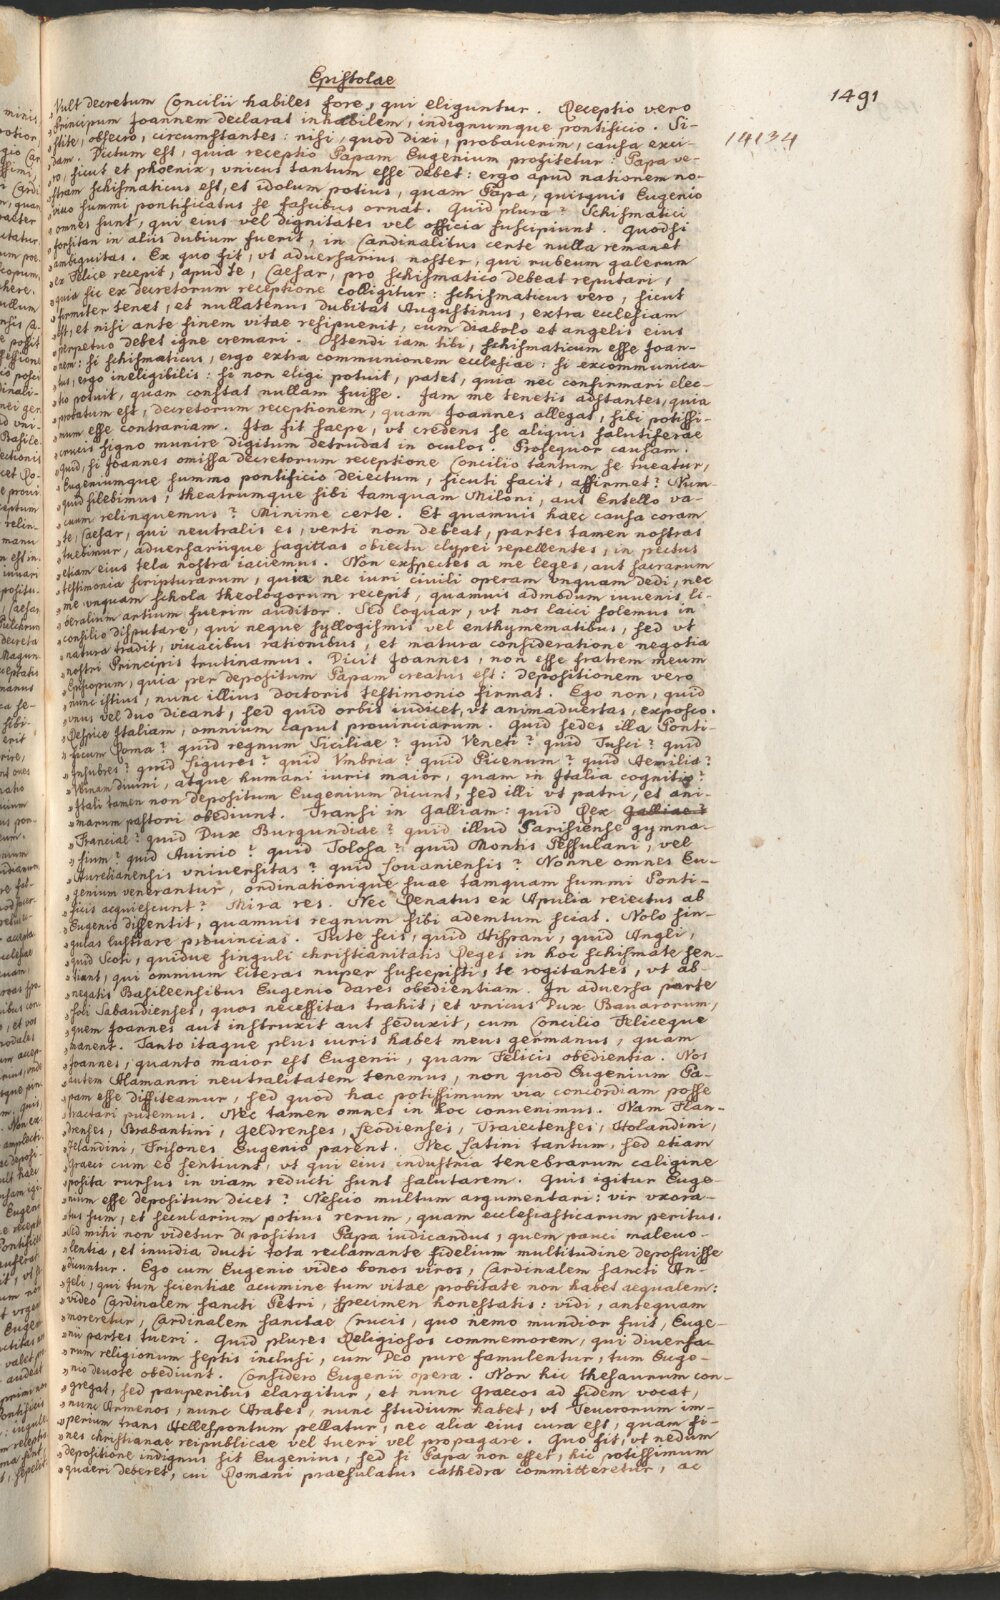 Epistolae
1491
14134
Vult decretum Concilii habiles fore, qui eliguntur. Receptio vero
„Principum Joannem declarat inhabilem, indignumque pontificio. Si-
„stite, obsecro, circumstantes: nisi, quod dixi, probauerim, causa exci-
„dam. Dictum est, quia receptio Papam Eugenium profitetur: Papa ve-
„ro, sicut et phoenix, vnicus tantum esse debet: ergo apud nationem no-
„stram schismaticus est, et idolum potius, quam Papa, quisquis Eugenio
„viuo summi pontificatus se fascibus ornat. Quid plura? Schismatici
„omnes sunt, qui eius vel dignitates vel officia suscipiunt. Quodsi
„forsitan in aliis dubium fuerit, in Cardinalibus certe nulla remanet
„ambiguitas. Ex quo fit, vt aduersarius noster, qui rubeum galerum
„ex Felice recepit, apud te, Caesar, pro schismatico debeat reputari,
„quia sic ex decretorum receptione colligitur: schismaticus vero, sicut
„firmiter tenet, et nullatenus dubitat Augustinus, extra ecclesiam
„est, et nisi ante finem vitae resipuerit, cum diabolo et angelis eius
„perpetuo debet igne cremari. Ostendi iam tibi, schismaticum esse Joan-
„nem: si schismaticus, ergo extra communionem ecclesiae: si excommunica-
„tus, ergo ineligibilis: si non eligi potuit, patet, quia nec confirmari elec-
„tio potuit, quam constat nullam fuisse. Jam me tenetis adstantes, quia
„probatum est, decretorum receptionem, quam Joannes allegat, sibi potissi-
„mum esse contrariam. Ita fit saepe, vt credens se aliquis salutiferae
„crucis signo munire digitum detrudat in oculos. Prosequor causam.
„quid, si Joannes omissa decretorum receptione Concilio tantum se tueatur,
„Eugeniumque summo pontificio deiectum, sicuti facit, affirmet? Num-
„quid silebimus, theatrumque sibi tamquam Miloni, aut Entello va-
„cuum relinquemus? Minime certe. Et quamuis haec causa coram
„te, Caesar, qui neutralis es, verti non debeat, partes tamen nostras
„tuebimur, aduersariique sagittas obiectu clypei repellentes, in pectus
„etiam eius tela nostra iaciemus. Non exspectes a me leges, aut sacrarum
„testimonia scripturarum, quia nec iuri ciuili operam vnquam dedi, nec
„me vnquam schola theologorum recepit, quamuis admodum iuuenis li-
„beralium artium fuerim auditor. Sed loquar, vt nos laici solemus in
„consilio disputare, qui neque syllogismis vel enthymematibus, sed vt
„natura tradit, viuacibus rationibus, et matura consideratione negotia
„nostri Principis trutinamus. Dicit Joannes, non esse fratrem meum
„Episcopum, quia per depositum Papam creatus est: depositionem vero
„nunc istius, nunc illius doctoris testimonio firmat. Ego non, quid
„vnus vel duo dicant, sed quid orbis iudicet, vt animaduertas, exposco.
„Respice Italiam, omnium caput prouinciarum. Quid sedes illa Ponti-
„ficum Roma? quid regnum Siciliae? quid Veneti? quid Tusci? quid
„Insubres? quid Ligures? quid Vmbria? quid Picenum? quid Aemilia?
„Vbinam diuini, atque humani iuris maior, quam in Italia cognitio?
„Itali tamen non depositum Eugenium dicunt, sed illi vt patri, et ani-
„marum pastori obediunt. Transi in Galliam: quid Rex Galliae?
„Franciae? quid Dux Burgundiae? quid illud Parisiense gymna-
„sium? quid Auinio? quid Tolosa? quid Montis Pessulani, vel
„Aurelianensis vniuersitas? quid Louaniensis? Nonne omnes Eu-
„genium venerantur, ordinationique suae tamquam summi Ponti-
„ficis acquiescunt? Mira res. Nec Renatus ex Apulia reiectus ab
„Eugenio dissentit, quamuis regnum sibi ademtum sciat. Nolo sin-
„gulas lustrare prouincias. Tute scis, quid Hispani, quid Angli,
„quid Scoti, quidue singuli christianitatis Reges in hoc schismate sen-
„tiant, qui omnium literas nuper suscepisti, te rogitantes, vt ab-
„negatis Basileensibus Eugenio dares obedientiam. In aduersa parte
„soli Sabaudienses, quos necessitas trahit, et vnicus Dux Bauarorum,
„quem Joannes aut instruxit aut seduxit, cum Concilio Feliceque
„manent. Tanto itaque plus iuris habet meus germanus, quam
„Joannes, quanto maior est Eugenii, quam Felicis obedientia. Nos
„autem Alamanni neutralitatem tenemus, non quod Eugenium Pa-
„pam esse diffiteamur, sed quod hac potissimum via concordiam posse
„tractari putemus. Nec tamen omnes in hoc conuenimus. Nam Flan-
„drenses, Brabantini, Geldrenses, Leodienses, Traiectenses, Holandini,
„Zelandini, Frisones Eugenio parent. Nec Latini tantum, sed etiam
„Graeci cum eo sentiunt, vt qui eius industria tenebrarum caligine
„posita rursus in viam reducti sunt salutarem. Quis igitur Euge-
„nium esse depositum dicet? Nescio multum argumentari: vir vxora-
„tus sum, et secularium potius rerum, quam ecclesiasticarum peritus.
„Sed mihi non videtur depositus Papa iudicandus, quem pauci maleuo-
„lentia, et inuidia ducti tota reclamante fidelium multitudine deposuisse
„dicuntur. Ego cum Eugenio video bonos viros, Cardinalem sancti An-
„geli, qui tum scientiae acumine tum vitae probitate non habet aequalem:
„video Cardinalem sancti Petri, specimen honestatis: vidi, antequam
„moreretur, Cardinalem sanctae Crucis, quo nemo mundior fuit, Euge-
„nii partes tueri. Quid plures Religiosos commemorem, qui diuersa-
„rum religionum septis inclusi, cum Deo pure famulentur, tum Euge-
„nio deuote obediunt. Considero Eugenii opera. Non hic thesaurum con-
„gregat, sed pauperibus elargitur, et nunc Graecos ad fidem vocat,
„nunc Armenos, nunc Arabes, nunc studium habet, vt Teucrorum im-
„perium trans Hellespontum pellatur, nec alia eius cura est, quam fi-
„nes christianae reipublicae vel tueri vel propagare. Quo fit, vt nedum
„depositione indignus sit Eugenius, sed si Papa non esset, hic potissimum
„quaeri deberet, cui Romani praesulatus cathedra committeretur, ac